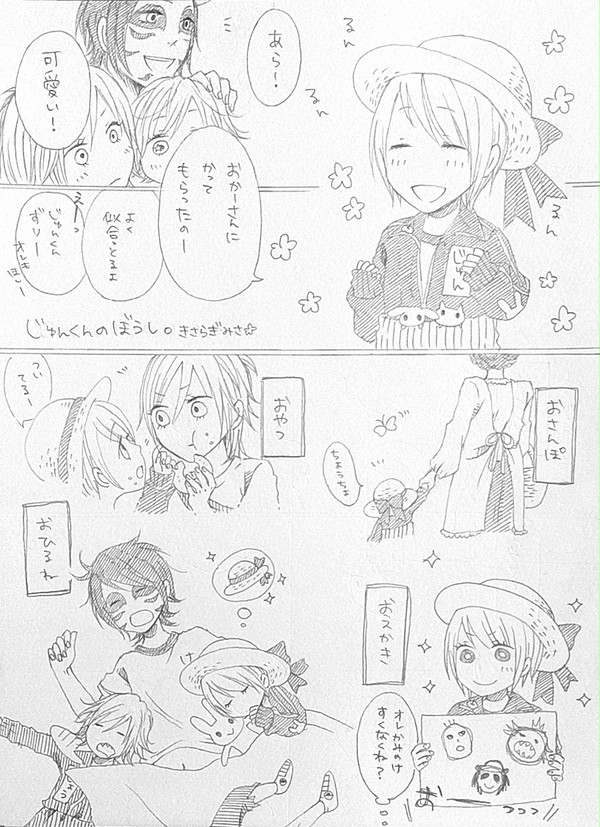 るん
るん
るん
じゅん
おかーさんに
かって
もらったのー
あら!
可愛い!
よく
似合っとるよ
えーっ
じゅんくん
ずりー
オレも
ほしー
じゅんくんのぼうし。きさらぎみさ☆
おさんぽ
ちょうちょ
おやつ
ついてるー
おひるね
おえかき
オレかみのけ
すくなくね?
フフフ